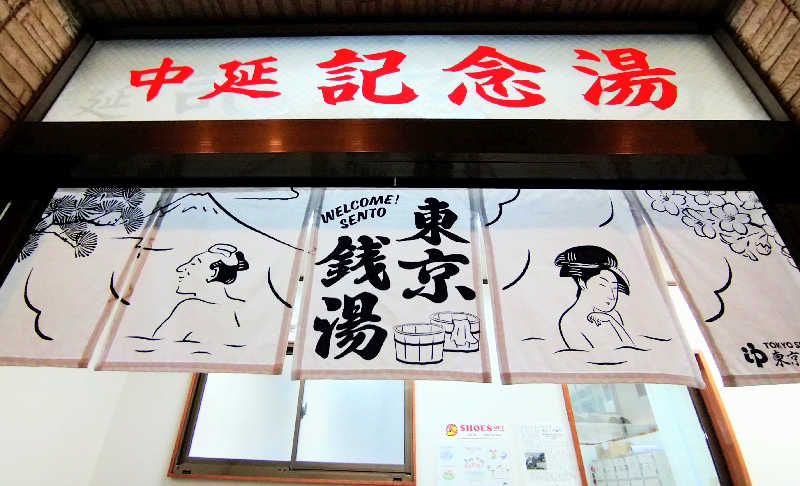 中延 記念湯
WELCOME!
SENTO
東京
銭湯
TOKYO S
東京
SHOES